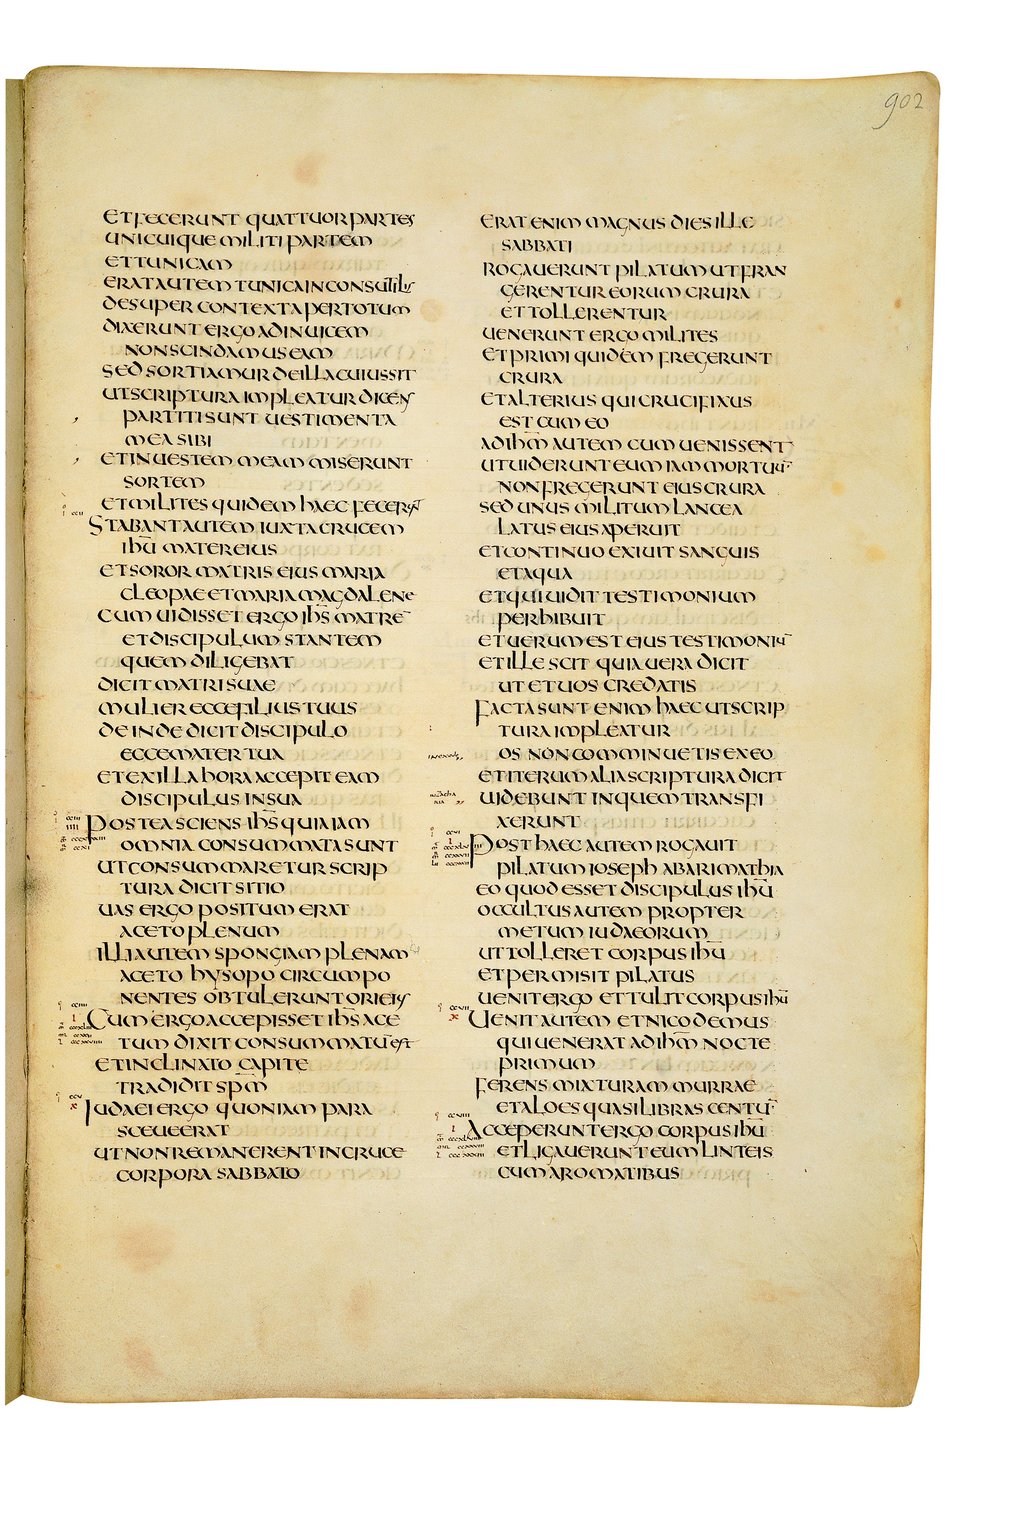 902
ET FECERUNT QUATTUOR PARTES
UNICUIQUE MILITI PARTEM
ET TUNICAM
ERAT AUTEM TUNICA INCONSUTILIS
DESUPER CONTEXTA PER TOTUM
DIXERUNT ERGO AD INUICEM
NON SCINDAMUS EAM
SED SORTIAMUR DE ILLA CUIUS SIT
UT SCRIPTURA IMPLEATUR DICENS
PARTITI SUNT UESTIMENTA
MEA SIBI
ET IN UESTEM MEAM MISERUNT
SORTEM
ET MILITES QUIDEM HAEC FECERUNT
STABANT AUTEM IUXTA CRUCEM
IHŪ MATER EIUS
ET SOROR MATRIS EIUS MARIA
CLEOPAE ET MARIA MAGDALENE
CUM UIDISSET ERGO IHS̄ MATRE¯
ET DISCIPULUM STANTEM
QUEM DILIGEBAT
DICIT MATRI SUAE
MULIER ECCE FILIUS TUUS
DEINDE DICIT DISCIPULO
ECCE MATER TUA
ET EX ILLA HORA ACCEPIT EAM
DISCIPULUS IN SUA
POSTEA SCIENS IHS̄ QUIA IAM
OMNIA CONSUMMATA SUNT
UT CONSUMMARETUR SCRIP
TURA DICIT SITIO
UAS ERGO POSITUM ERAT
ACETO PLENUM
ILLI AUTEM SPONGIAM PLENAM
ACETO HYSOPO CIRCUMPO
NENTES OBTULERUNT ORI EIUS
CUM ERGO ACCEPISSET IHS̄ ACE
TUM DIXIT CONSUMMATU¯ EST
ET INCLINATO CAPITE
TRADIDIT SPM̄
IUDAEI ERGO QUONIAM PARA
SCEUE ERAT
UT NON REMANERENT IN CRUCE
CORPORA SABBATO
ERAT ENIM MAGNUS DIES ILLE
SABBATI
ROGAUERUNT PILATUM UT FRAN
GERENTUR EORUM CRURA
ET TOLLERENTUR
UENERUNT ERGO MILITES
ET PRIMI QUIDEM FREGERUNT
CRURA
ET ALTERIUS QUI CRUCIFIXUS
EST CUM EO
AD IHM̄ AUTEM CUM UENISSENT
UT UIDERUNT EUM IAM MORTUU¯
NON FREGERUNT EIUS CRURA
SED UNUS MILITUM LANCEA
LATUS EIUS APERUIT
ET CONTINUO EXIUIT SANGUIS
ET AQUA
ET QUI UIDIT TESTIMONIUM
PERHIBUIT
ET UERUM EST EIUS TESTIMONIU¯
ET ILLE SCIT QUIA UERA DICIT
UT ET UOS CREDATIS
FACTA SUNT ENIM HAEC UT SCRIP
TURA IMPLEATUR
OS NON COMMINUETIS EX EO
ET ITERUM ALIA SCRIPTURA DICIT
UIDEBUNT IN QUEM TRANSFI
XERUNT
POST HAEC AUTEM ROGAUIT
PILATUM IOSEPH AB ARIMATHIA
EO QUOD ESSET DISCIPULUS IHŪ
OCCULTUS AUTEM PROPTER
METUM IUDAEORUM
UT TOLLERET CORPUS IHŪ
ET PERMISIT PILATUS
UENIT ERGO ET TULIT CORPUS IHŪ
UENIT AUTEM ET NICODEMUS
QUI UENERAT AD IHM̄ NOCTE
PRIMUM
FERENS MIXTURAM MURRAE
ET ALOES QUASI LIBRAS CENTU¯
ACCEPERUNT ERGO CORPUS IHŪ
ET LIGAUERUNT EUM LINTEIS
CUM AROMATIBUS